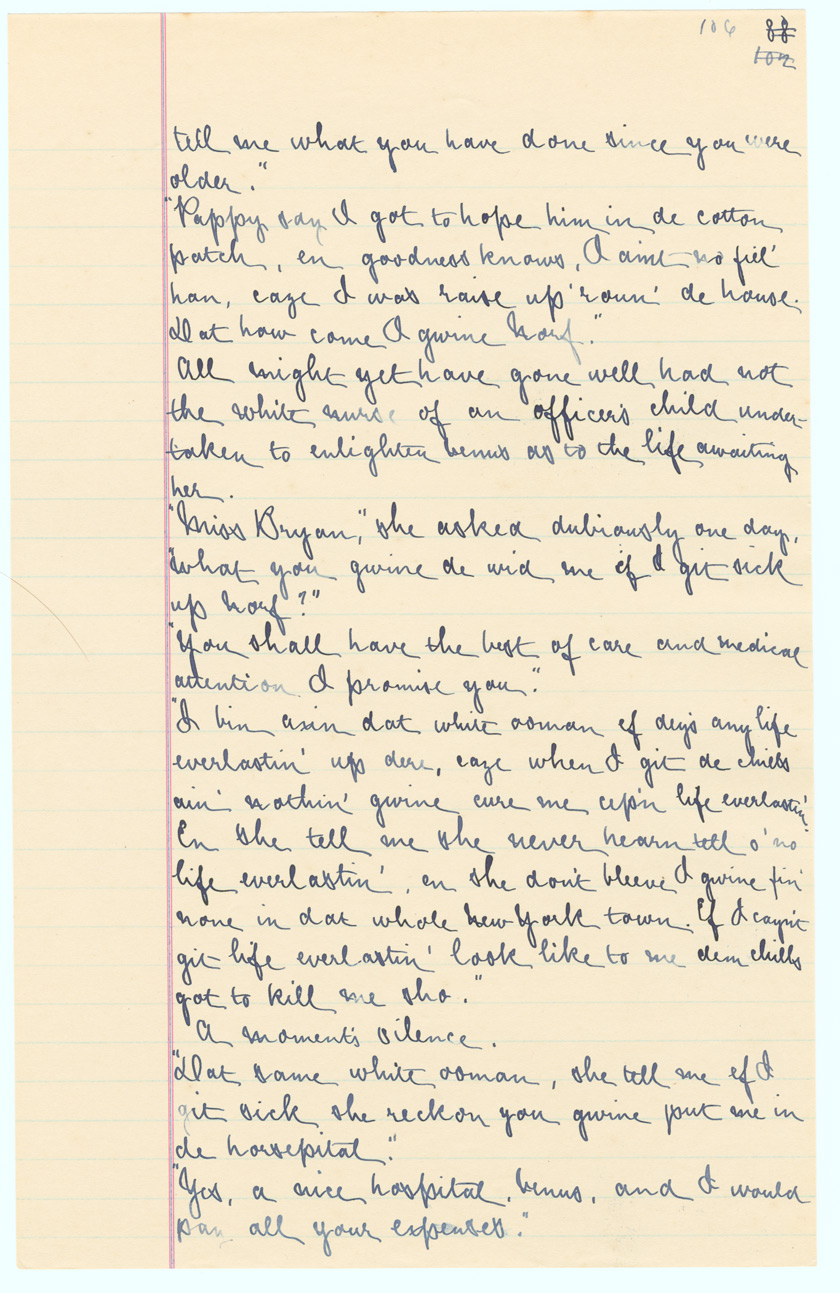 106 88
102
tell me what you have done since you were
older."
"Pappy say I got to hope him in de cotton
patch, en goodness knows, I aint no fiel'
han, caze I was raise up 'roun' de house.
Dat how come I gwine Norf."
All might yet have gone well had not
the white nurse of an officer's child under-
taken to enlighten Venus as to the life awaiting
her.
"Miss Bryan," she asked dubiously one day,
"what you gwine do wid me ef I git sick
up Norf?"
"You shall have the best of care and medical
attention I promise you."
"I bin axin dat white ooman ef deys any life
everlastin' up dere, caze when I git de chills
ain' nothin' gwine cure me cep'n life everlastin'.
En she tell me she never hearn tell o' no
life everlastin', en she don't bleeve I gwine fin'
none in dat whole New York town. Ef I cayn't
git life everlastin' look like to me dem chills
got to kill me sho."
A moment's silence.
"Dat same white ooman, she tell me ef I
git sick she reckon you gwine put me in
de horsepital."
"Yes, a nice hospital, Venus, and I would
pay all your expenses."